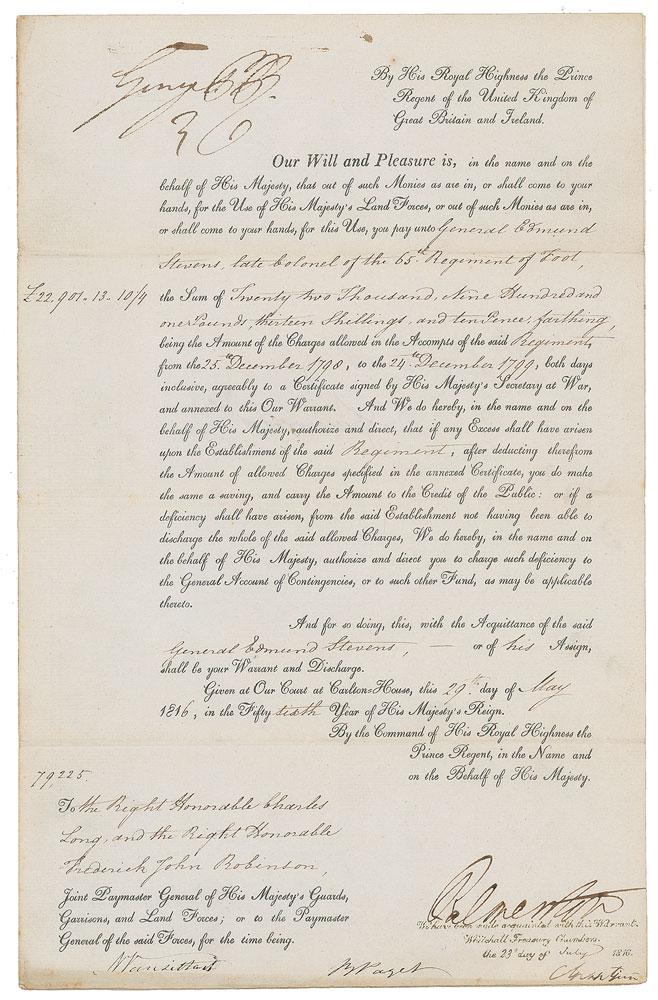 George P R
By His Royal Highness the Prince
Regent of the United Kingdom of
Great Britain and Ireland.
Our Will and Pleasure is, in the name and on the
behalf of His Majesty, that out of such Monies as are in, or shall come to your
hands, for the Use of His Majesty's Land Forces, or out of such Monies as are in,
or shall come to your hands, for this Use, you pay unto General Edmund
Stevens, late Colonel of the 65th Regiment of Foot,
£22,901-13-10/4 the Sum of Twenty two Thousand, Nine Hundred and
one Pounds, thirteen Shillings, and ten Pence, farthing,
being the Amount of the Charges allowed in the Accompts of the said Regiment,
from the 25th December 1798, to the 24th December 1799, both days
inclusive, agreeably to a Certificate signed by His Majesty's Secretary at War,
and annexed to this Our Warrant. And We do hereby, in the name and on the
behalf of His Majesty, authorize and direct, that if any Excess shall have arisen
upon the Establishment of the said Regiment, after deducting therefrom
the Amount of allowed Charges specified in the annexed Certificate, you do make
the same a saving, and carry the Amount to the Credit of the Public: or if a
deficiency shall have arisen, from the said Establishment not having been able to
discharge the whole of the said allowed Charges, We do hereby, in the name and on
the behalf of His Majesty, authorize and direct you to charge such deficiency to
the General Account of Contingencies, or to such other Fund, as may be applicable
thereto.
And for so doing, this, with the Acquittance of the said
General Edmund Stevens, — or of his Assign,
shall be your Warrant and Discharge.
Given at Our Court at Carlton-House, this 29th day of May
1816, in the Fifty sixth Year of His Majesty's Reign.
By the Command of His Royal Highness the
Prince Regent, in the Name and
on the Behalf of His Majesty.
79,225
To the Right Honorable Charles
Long, and the Right Honorable
Frederick John Robinson,
Joint Paymaster General of His Majesty's Guards,
Garrisons, and Land Forces; or to the Paymaster
General of the said Forces, for the time being.
Palmerston
We have been made acquainted with this Warrant.
Whitehall Treasury Chambers.
the 23d day of July 1816.
N Vansittart
B Paget